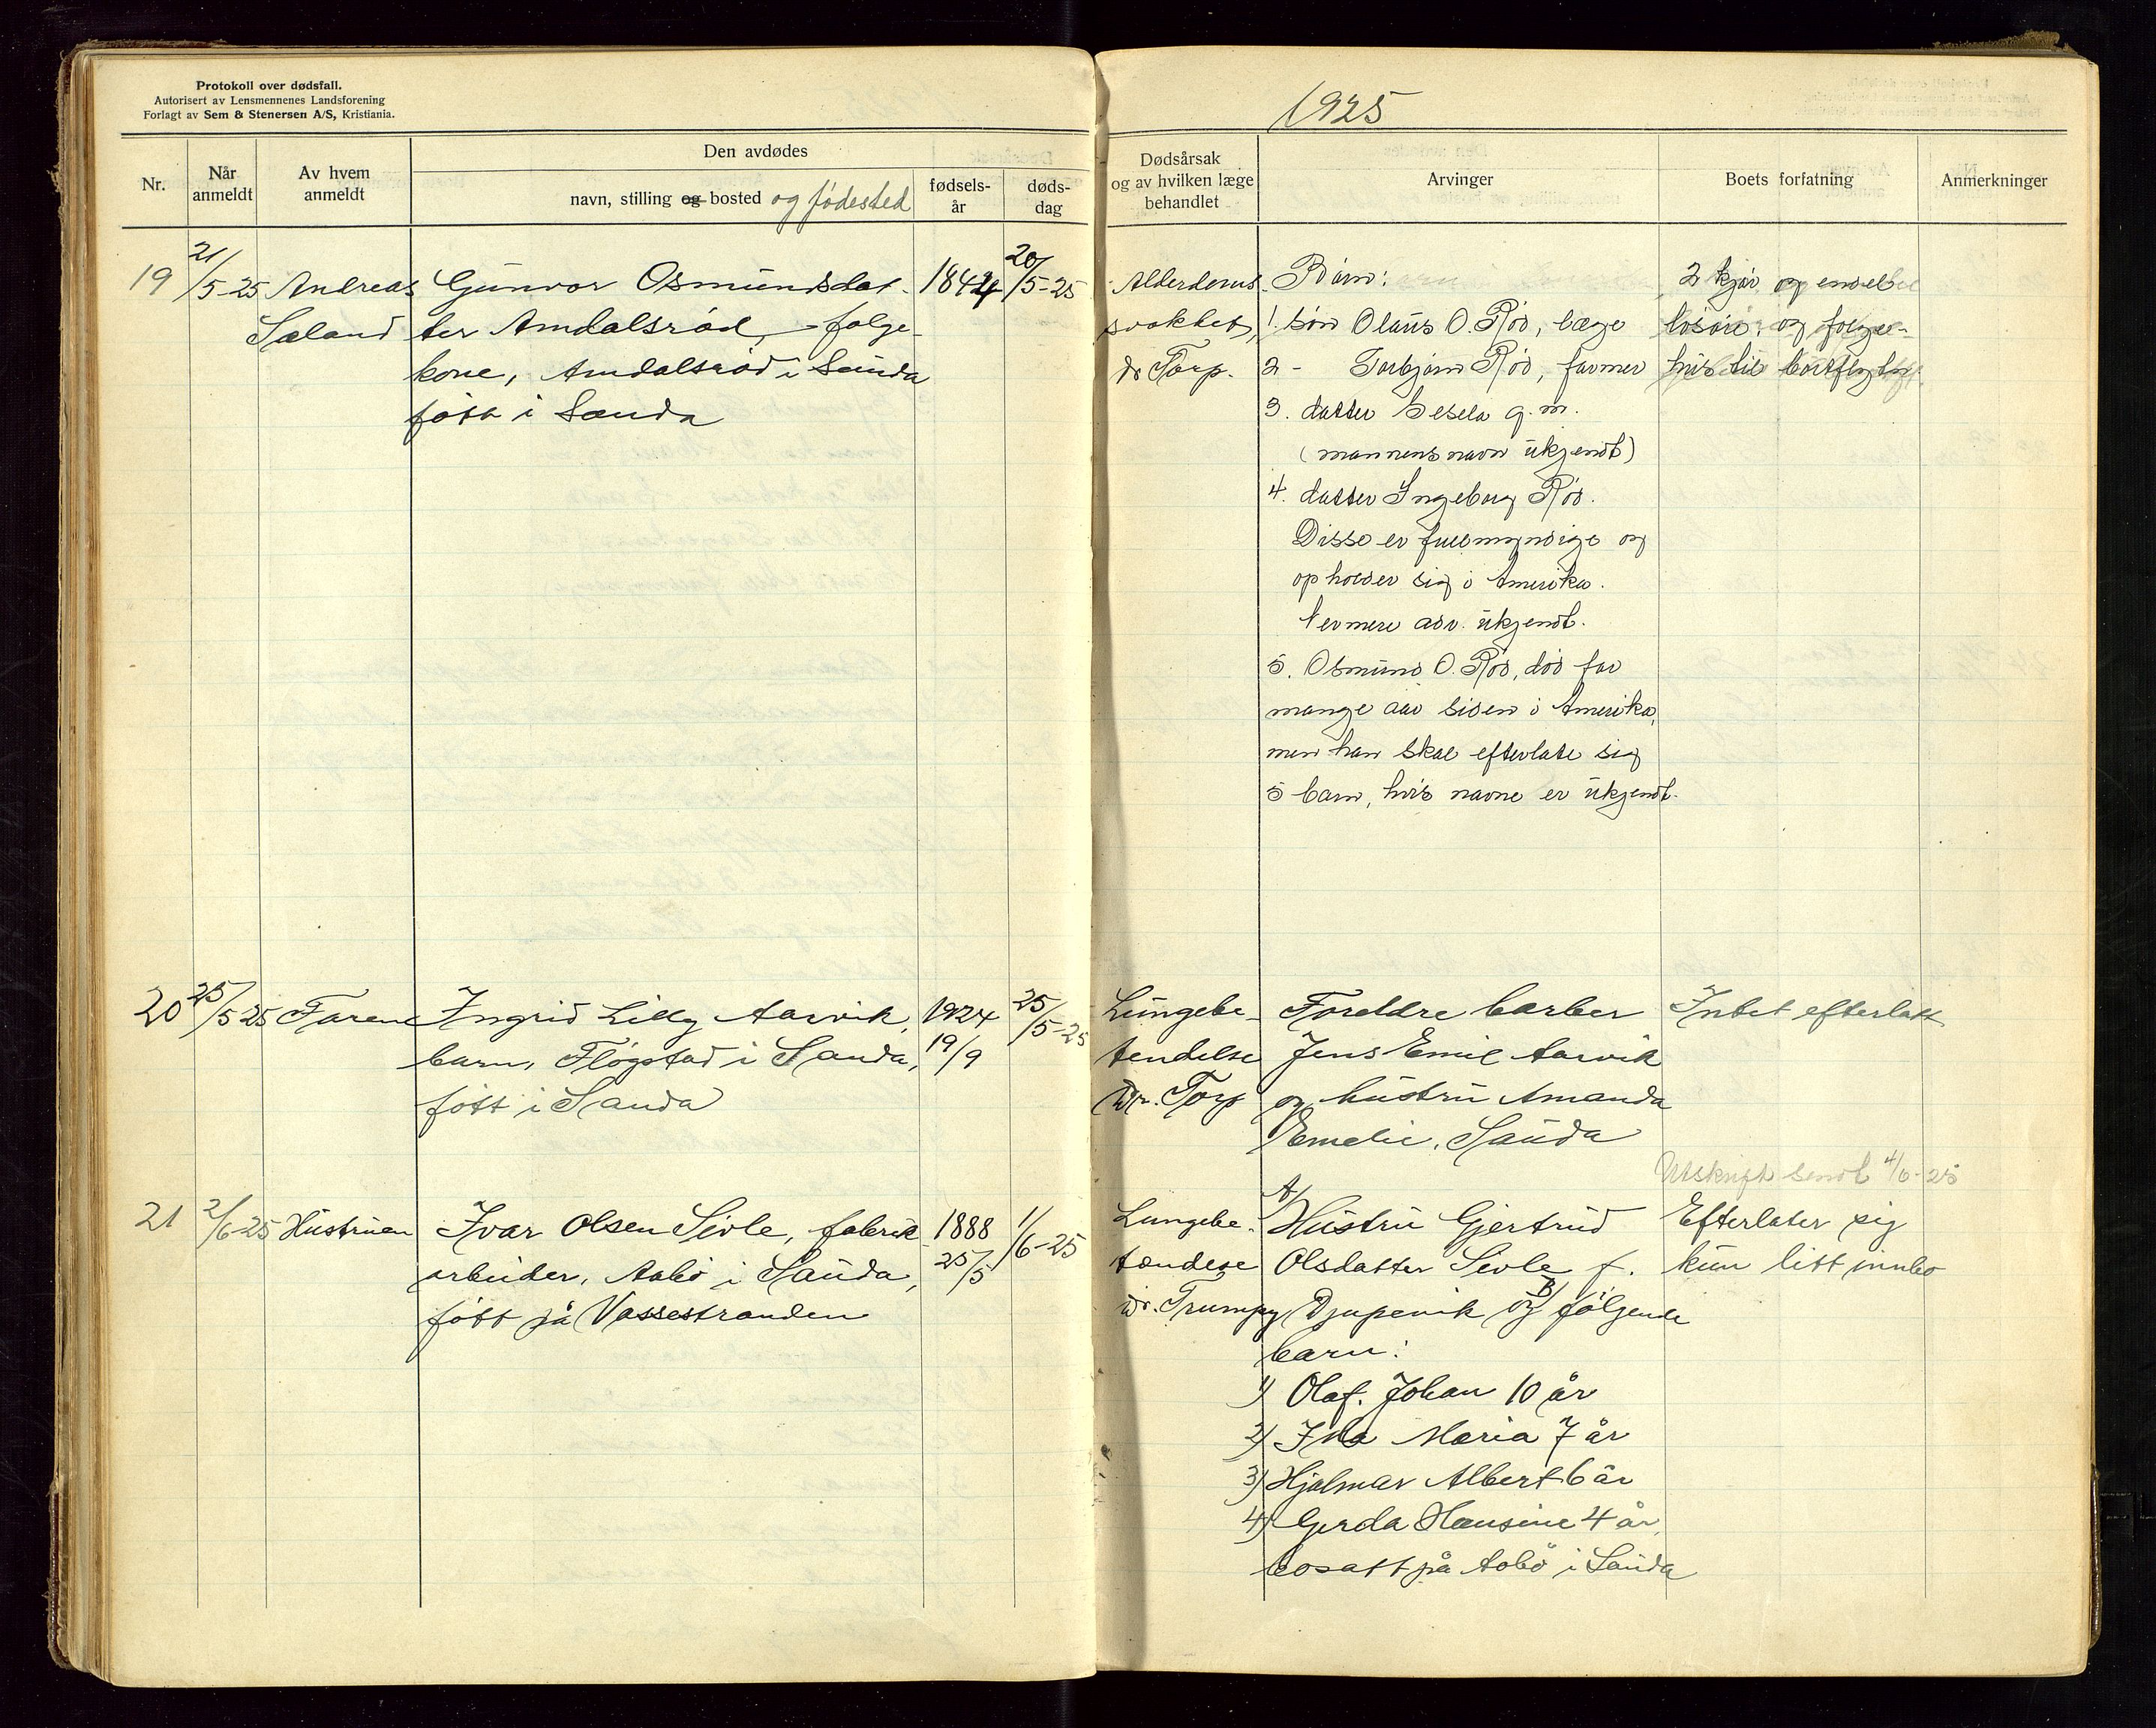 Protokoll over dødsfall.
Autorisert av Lensmennenes Landsforening
Forlagt av Sem & Stenersen A/S, Kristiania.
1925
Nr.
Når
anmeldt
Av hvem
anmeldt
Den avdødes
navn, stilling og bosted og fødested
fødsels-
år
døds-
dag
Dødsårsak
og av hvilken læge
behandlet
Arvinger
Boets forfatning
Anmerkninger
19
21/5-25
Andreas
Sæland
Gunvor Osmundsdat-
ter Amdalsrød, folge-
kone, Amdalsrød i Sauda
født i Sauda
1844
20/5-25
Alderdoms-
svakhet,
dr Torp.
Børn:
1. søn Olaus O. Rød, læge
2 - Torbjørn Rød, farmer
3. datter Sesela g. m.
(mannens navn ukjendt)
4. datter Ingeborg Rød.
Disse er fullmyndige og
opholder sig i Amerika.
Nermere adr. ukjendt.
5. Osmund O. Rød, død for
mange aar siden i Amerika,
men han skal efterlate sig
5 barn, hvis navne er ukjendt.
2 kjør og endel
løsøre og folge-
hus til bortflytn
20
25/5 25
Faren
Ingrid Lilly Aarvik,
barn, Fløgstad i Sauda,
født i Sauda
1924
19/9
25/5-25
Lungebe-
tendelse
Dr. Torp
Foreldre barber
Jens Emil Aarvik
og hustru Amanda
Emelie, Sauda
Intet efterlatt
Utskrift sendt 4/6-25
21
2/6-25
Hustruen
Ivar Olsen Sivle, fabrik-
arbeider, Aabø i Sauda,
født på Vossestranden
1888
25/5
1/6-25
Lungebe-
tændelse
Dr. Trumpy
A/
Hustru Gjertrud
Olsdatter Sivle f.
Djupevik og B/ følgende
barn:
1) Olaf Johan 10 år
2) Ida Maria 7 år
3) Hjalmar Albert 6 år
4) Gerda Hansine 4 år,
bosatt på Aabø i Sauda
Efterlater sig
kun litt innbo